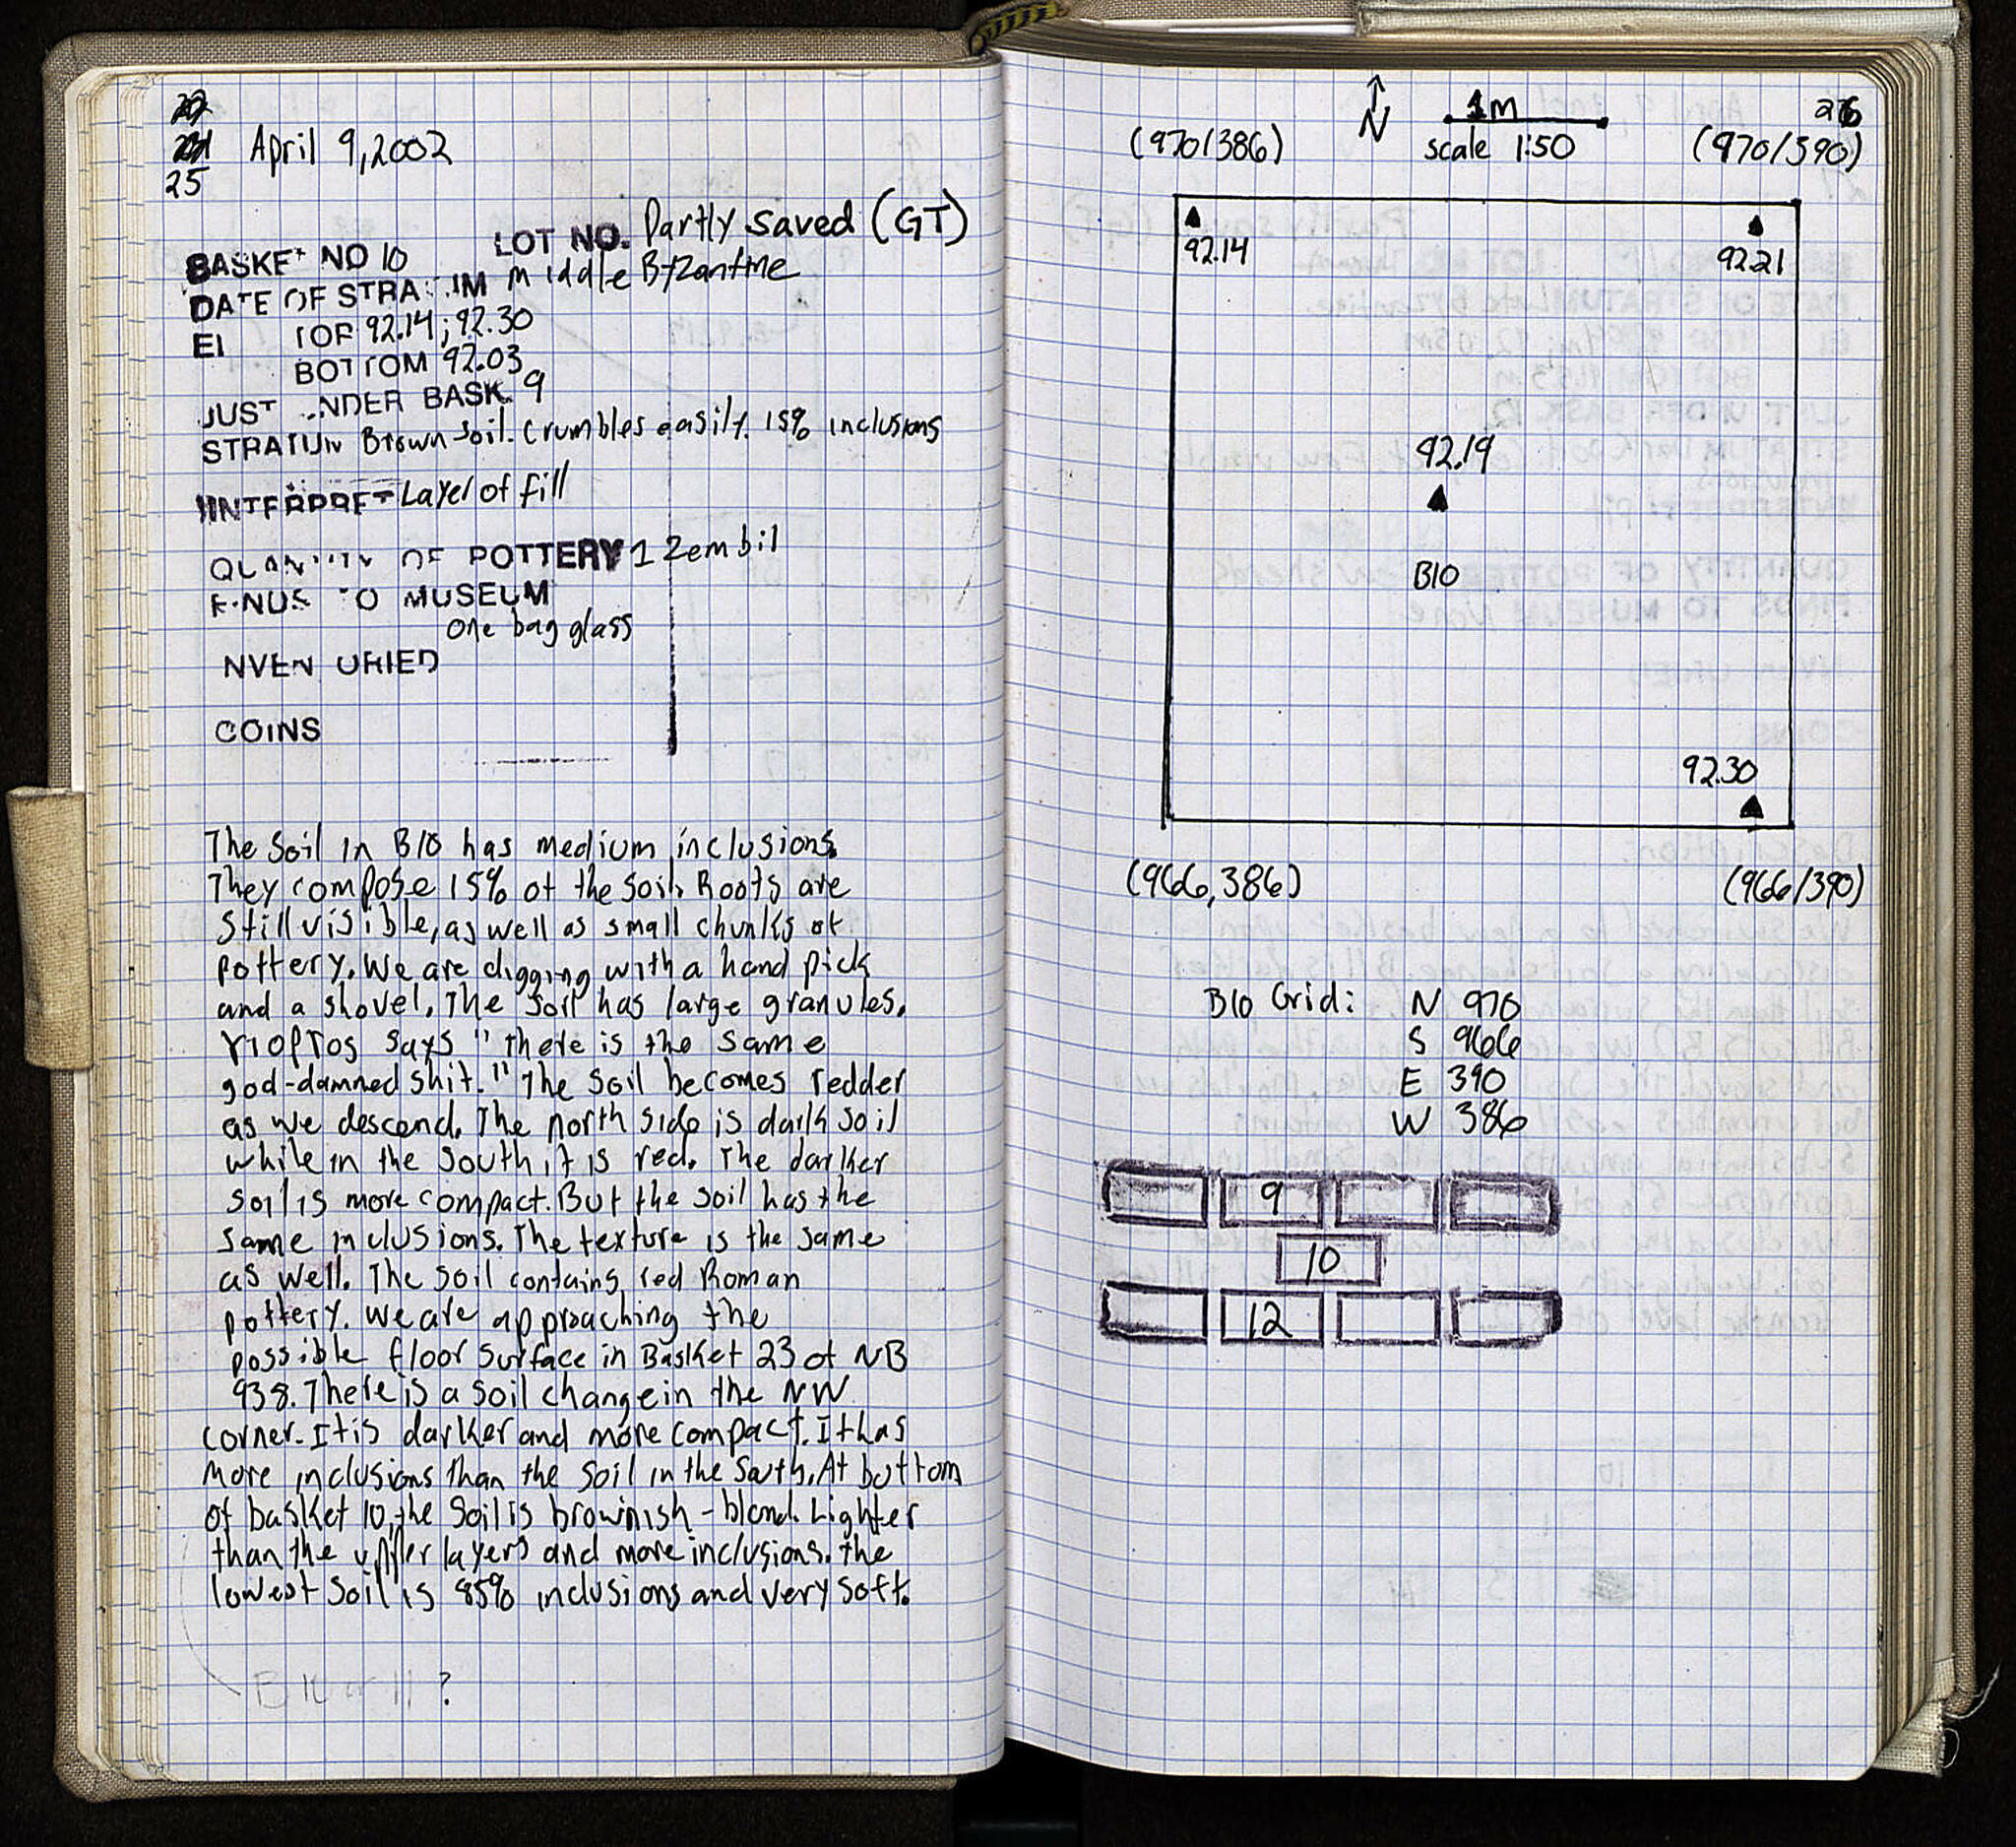 25
April 9, 2002
BASKET NO 10 LOT NO. Partly saved (GT)
DATE OF STRATUM Middle Byzantine
El TOP 92.14; 92.30
BOTTOM 92.03
JUST UNDER BASK. 9
STRATUM Brown soil. Crumbles easily. 15% inclusions
INTERPRET Layer of fill
QUANTITY OF POTTERY 1 Zembil
FINDS TO MUSEUM
one bag glass
INVENTORIED
COINS
The soil in B10 has medium inclusions.
They compose 15% of the soil. Roots are
still visible, as well as small chunks of
pottery. We are digging with a hand pick
and a shovel. The soil has large granules.
says "there is the same
god-damned shit." The soil becomes redder
as we descend. The north side is dark soil
while in the south it is red. The darker
soil is more compact. But the soil has the
same inclusions. The texture is the same
as well. The soil contains red Roman
pottery. We are approaching the
possible floor surface in Basket 23 of NB
938. There is a soil change in the NW
corner. It is darker and more compact. It has
more inclusions than the soil in the South. At bottom
of basket 10, the soil is brownish-blond. Lighter
than the upper layers and more inclusions. The
lowest soil is 85% inclusions and very soft.
B 10 or 11 ?
26
N
1m
scale 1:50
(970/386)
(970/390)
92.14
92.21
92.19
B10
92.30
(966,386)
(966/390)
B10 Grid: N 970
S 966
E 390
W 386
9
10
12